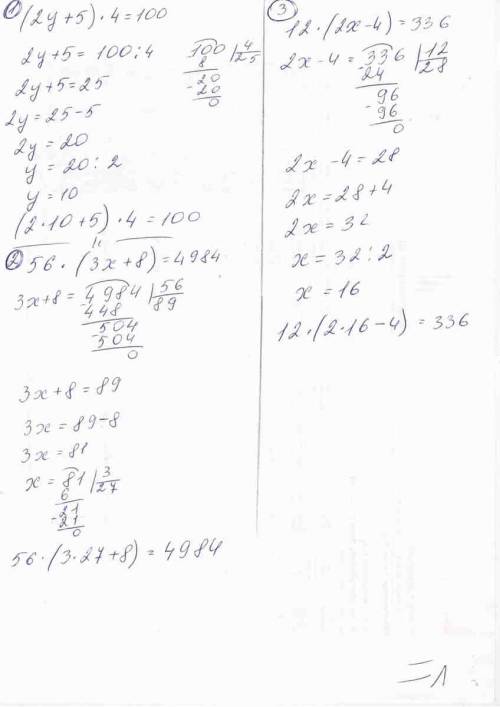 1
(2y+5)·4=100
2y+5=100:4
100 4
8 25
20
-20
0
2y+5=25
2y=25-5
2y=20
y=20:2
y=10
(2·10+5)·4=100
2 56·(3x+8)=4984
3x+8=4984 56
-448 89
504
-504
0
3x+8=89
3x=89-8
3x=81
x=81 3
6 27
21
-21
0
56·(3·27+8)=4984
3
12·(2x-4)=336
2x-4=336 12
-24 28
96
-96
0
2x-4=28
2x=28+4
2x=32
x=32:2
x=16
12·(2·16-4)=336